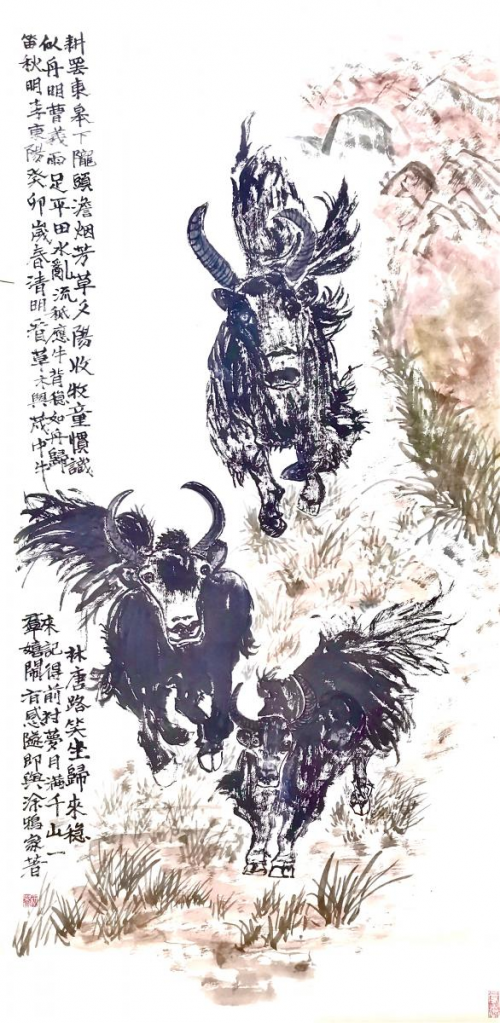 耕罢東皋下隴頭澹烟芳草夕陽收牧童慣識
似舟明曹義雨足平田水亂流秪應牛背穩如舟歸
笛秋明李東陽癸卯歲春清明前草木與茂中牛
林唐路笑坐歸來穩
來記得前村夢月滿千山一
群嬉鬧有感隧即與涂鴉家著